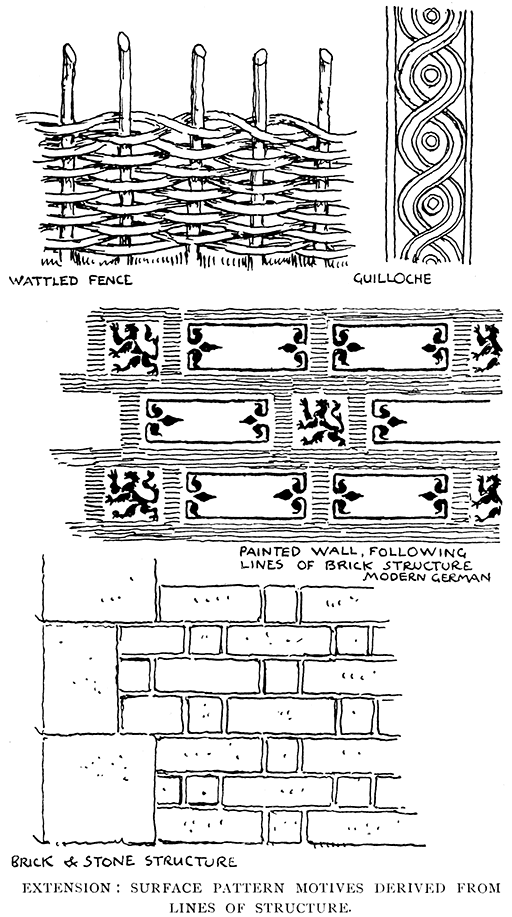 WATTLED FENCE
GUILLOCHE
PAINTED WALL, FOLLOWING
LINES OF BRICK STRUCTURE
MODERN GERMAN
BRICK & STONE STRUCTURE
EXTENSION: SURFACE PATTERN MOTIVES DERIVED FROM
LINES OF STRUCTURE.